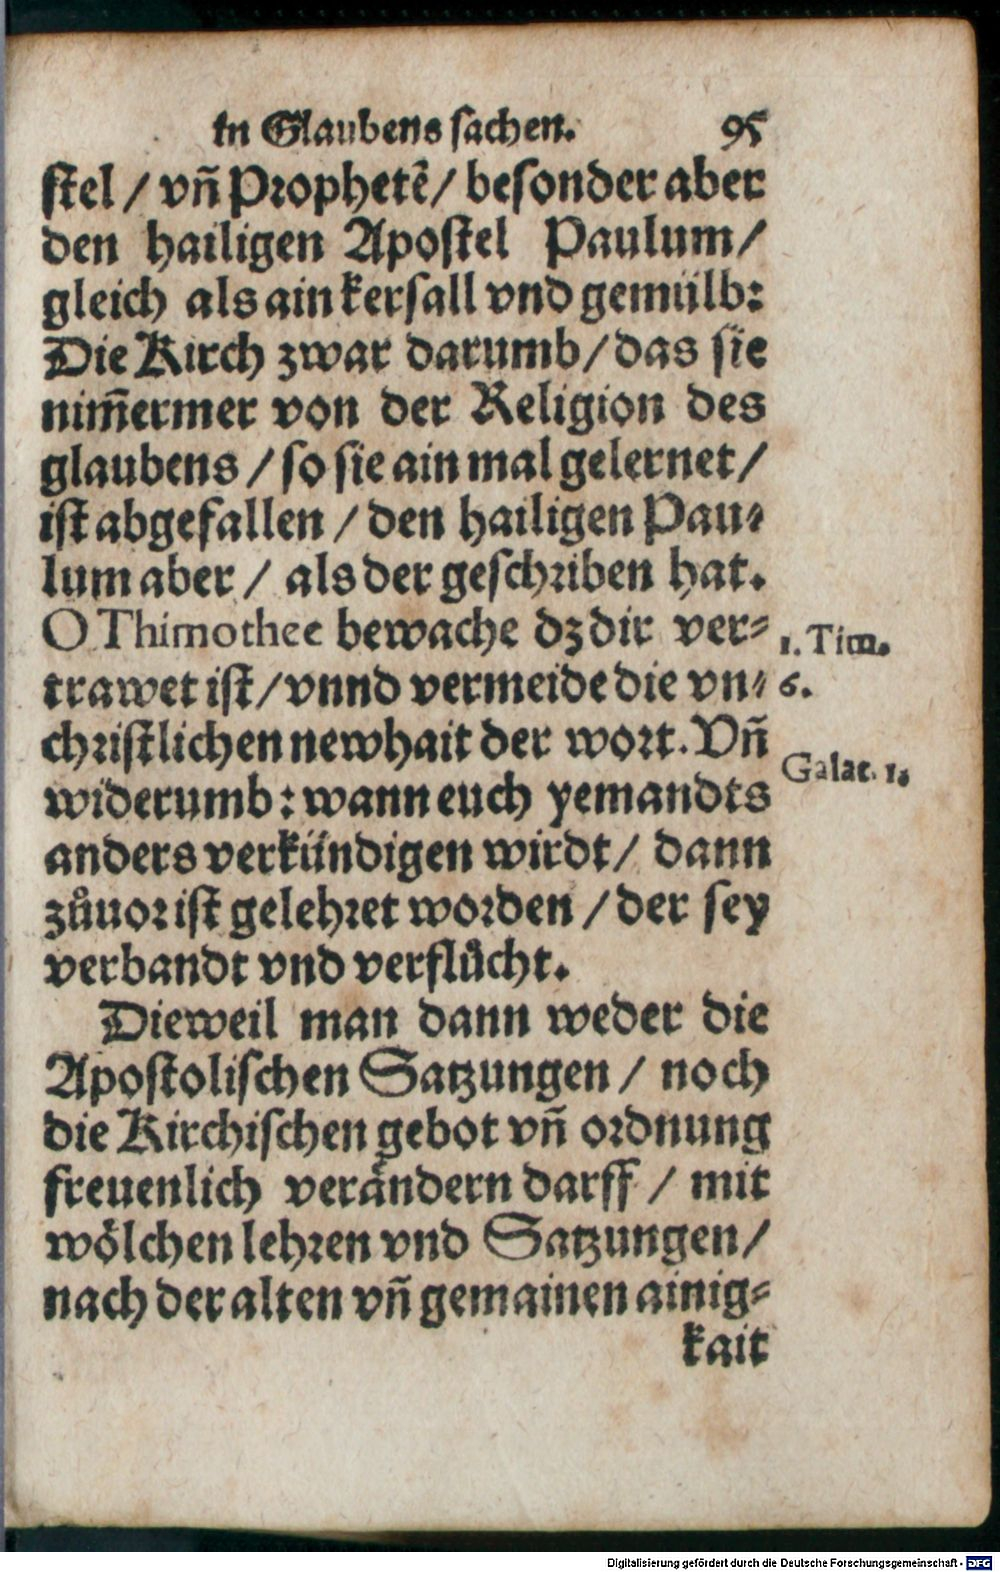 in Glaubens sachen. 95
stel / vñ Prophetẽ / besonder aber
den hailigen Apostel Paulum /
gleich als ain kersall vnd gemülb:
Die Kirch zwar darumb / das sie
nim̃ermer von der Religion des
glaubens / so sie ain mal gelernet /
ist abgefallen / den hailigen Pau-
lum aber / als der geschriben hat.
O Thimothee bewache dz dir ver-
1. Tim.
trawet ist / vnnd vermeide die vn-
6.
christlichen newhait der wort. Vñ
Galat. 1.
widerumb: wann euch yemandts
anders verkündigen wirdt / dann
zůuor ist gelehret worden / der sey
verbandt vnd verflůcht.
Dieweil man dann weder die
Apostolischen Satzungen / noch
die Kirchischen gebot vñ ordnung
freuenlich verändern darff / mit
wölchen lehren vnd Satzungen /
nach der alten vñ gemainen ainig-
kait
Digitalisierung gefördert durch die Deutsche Forschungsgemeinschaft - DFG